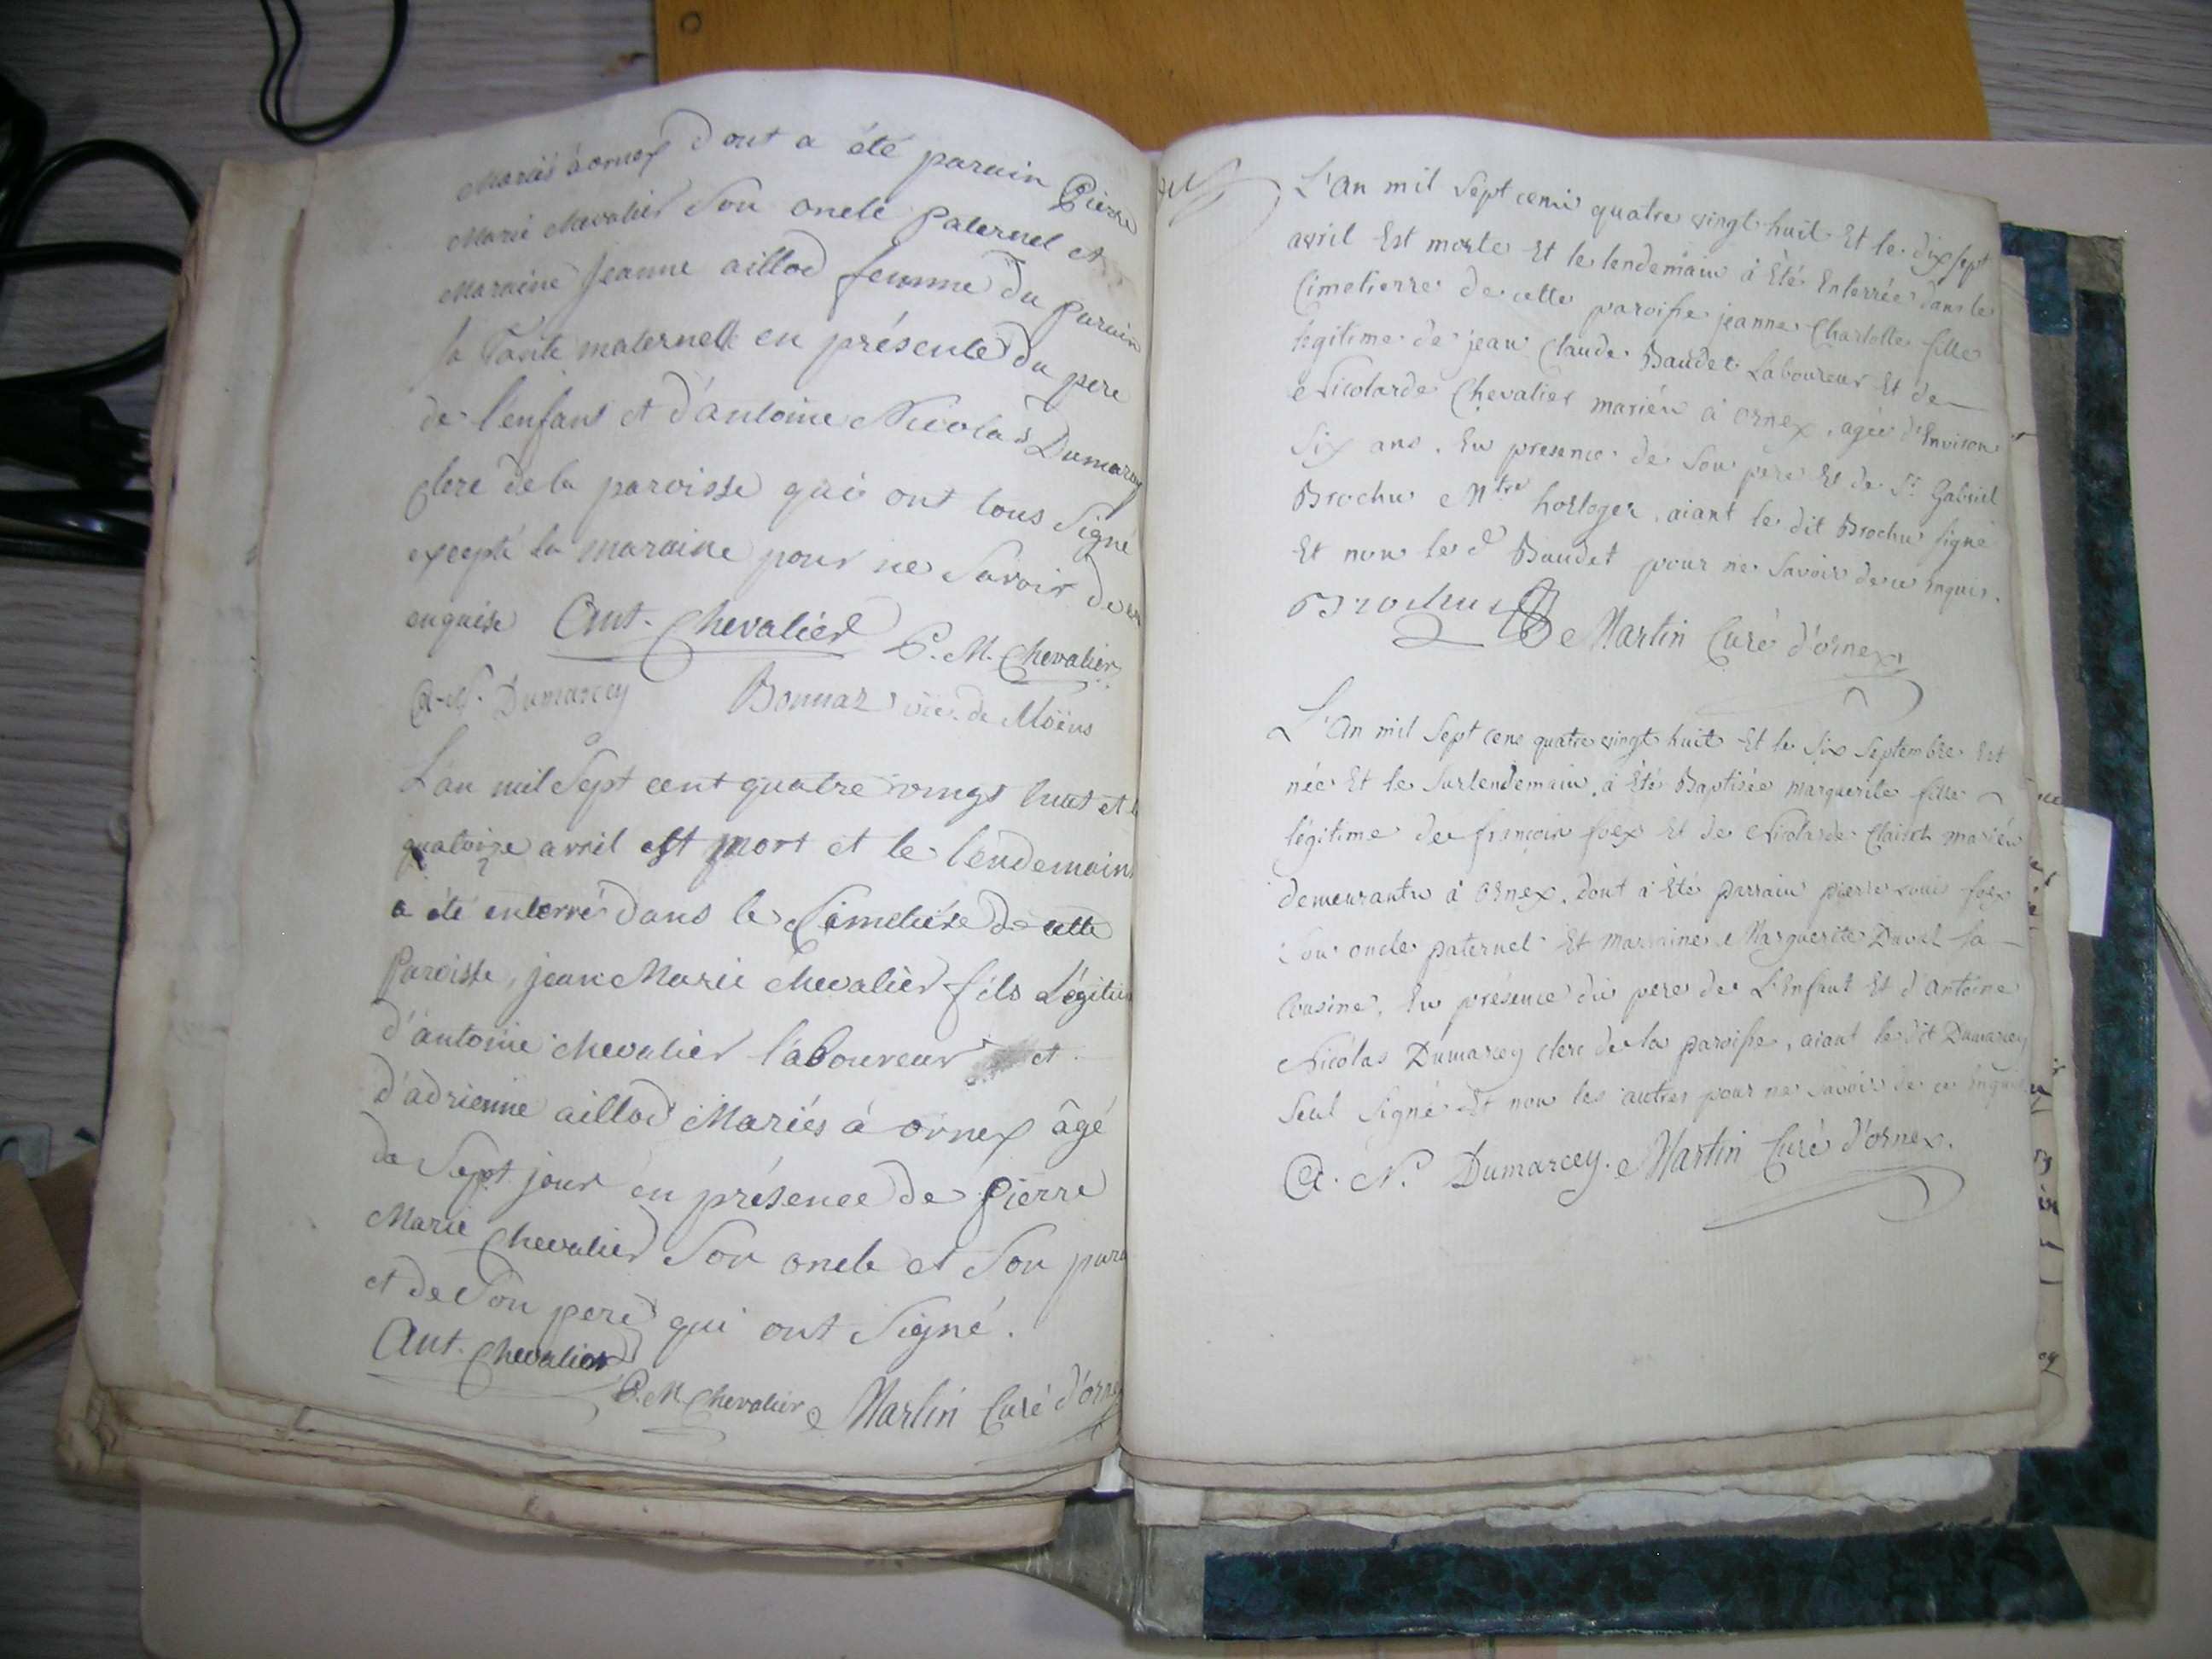 Mariés à ornex dont a été parain Pierre
Marie chevalier Son oncle Paternel et
Maraine Jeanne aillod femme du parain
la Tante maternelle en présence du pere
de l'enfant et d'antoine Nicolas Dumarcey
clerc de la paroisse qui ont tous Signé
excepté la maraine pour ne Savoir de ce
enquise Ant. Chevalier P. M. Chevalier
A. N. Dumarcey Bonnaz vic. de Moëns
L'an mil Sept cent quatre vingt huit et le
quatorze avril est mort et le lendemain
a été enterré dans le Cimetiére de cette
Paroisse, jean Marie chevalier fils Légitime
d'antoine chevalier laboureur et
d'adrienne aillod Mariés à ornex âgé
de Sept jour en présence de Pierre
Marie Chevalier Son oncle et Son para
et de Son pere qui ont Signé.
Ant. Chevalier
P. M. Chevalier Martin Curé d'ornex
L'An mil Sept cens quatre vingt huit Et le dix sept
avril Est morte Et le lendemain à Eté Enterrée dans le
Cimetierre de cette paroisse jeanne Charlotte fille
légitime de jean Claude Baudet Laboureur Et de
Nicolarde Chevalier mariés à Ornex, agée d'Environ
Six ans. En presence de Son père Et de Sr. Gabriel
Brochu Mtre horloger, aiant le dit Brochu signé
Et non le d. Baudet pour ne Savoir de ce enquis.
Brochu Martin Curé d'ornex
L'An mil Sept cens quatre vingt huit Et le Six Septembre Est
née Et le Surlendemain, à Eté Baptisée marguerite fille
légitime de françois foëx Et de Nicolarde mariés
demeurants à Ornex, dont à Eté parrain pierre foëx
Son oncle paternel Et marraine Marguerite Duval Sa
Cousine, En présence du pere de L'Enfant Et d'Antoine
Nicolas Dumarcey clerc de la paroisse, aiant le dit Dumarcey
Seul Signé Et non les autres pour ne Savoir de ce Enquis
A. N. Dumarcey. Martin Curé d'ornex.